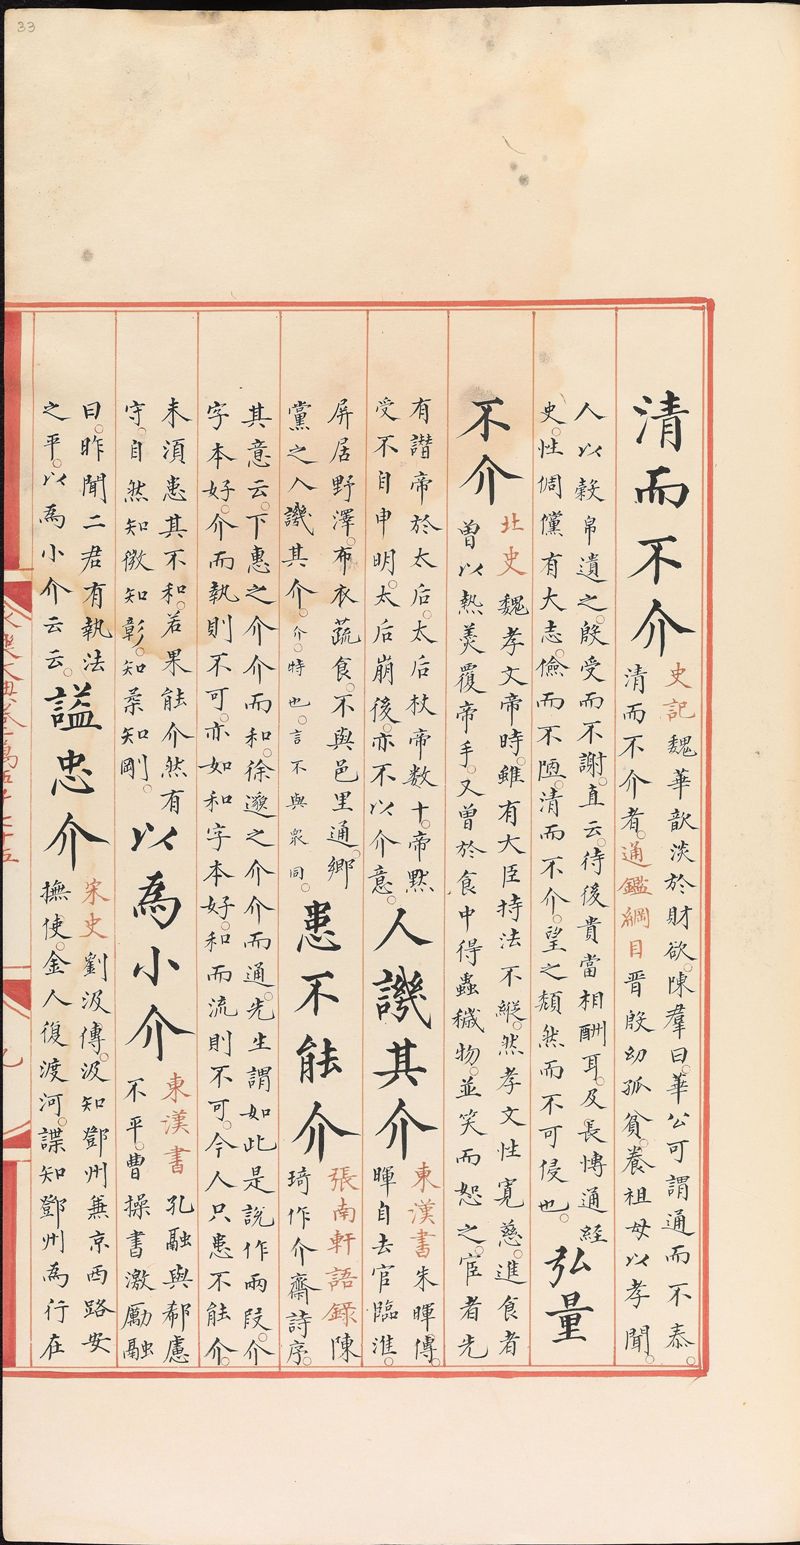 33
清而不介
史記魏華歆淡於財欲。陳羣曰。華公可謂通而不泰。
清而不介者。通鑑綱目晉殷幼孤貧。養祖母以孝聞。
人以穀帛遺之。殷受而不謝。直云。待後貴當相酬耳。及長慱通經
史。性倜儻有大志。儉而不陋。清而不介。望之頹然而不可侵也。
弘量
不介
北史魏孝文帝時。雖有大臣持法不縱。然孝文性寛慈。進食者
曽以熱羮覆帝手。又曽於食中得蟲穢物。並笑而恕之。宦者先
有譖帝於太后。太后杖帝数十。帝黙
受不自申明。太后崩後。亦不以介意。
人譏其介
東漢書朱暉傳。
暉自去官臨淮。
屏居野澤。布衣蔬食。不與邑里通。鄉
黨之人譏其介。介。特也。言不與衆同。
患不能介
張南軒語録陳
琦作介齋詩序。
其意云。下惠之介介而和。徐邈之介介而通。先生謂如此是説作兩段。介
字本好。介而執則不可。亦如和字本好。和而流則不可。今人只患不能介。
未須患其不和。若果能介然有
守。自然知微知彰。知柔知剛。
以為小介
東漢書孔融與郗慮
不平。曹操書激厲融
曰。昨聞二君有執法
之平。以為小介云云。
諡忠介
宋史劉汲傳。汲知鄧州兼京西路安
撫使。金人復渡河。諜知鄧州為行在
永樂大典卷一萬五千七十五
九